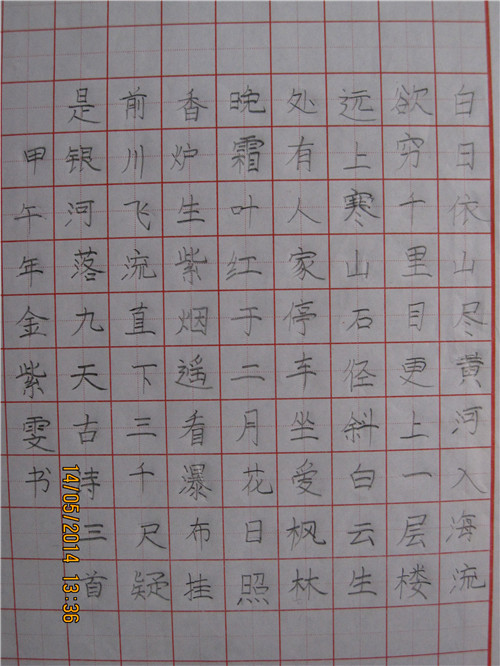 白日依山尽黄河入海流
欲穷千里目更上一层楼
远上寒山石径斜白云生
处有人家停车坐爱枫林
晚霜叶红于二月花日照
香炉生紫烟遥看瀑布挂
前川飞流直下三千尺疑
是银河落九天古诗三首
甲午年金紫雯书
14/05/2014 13:36